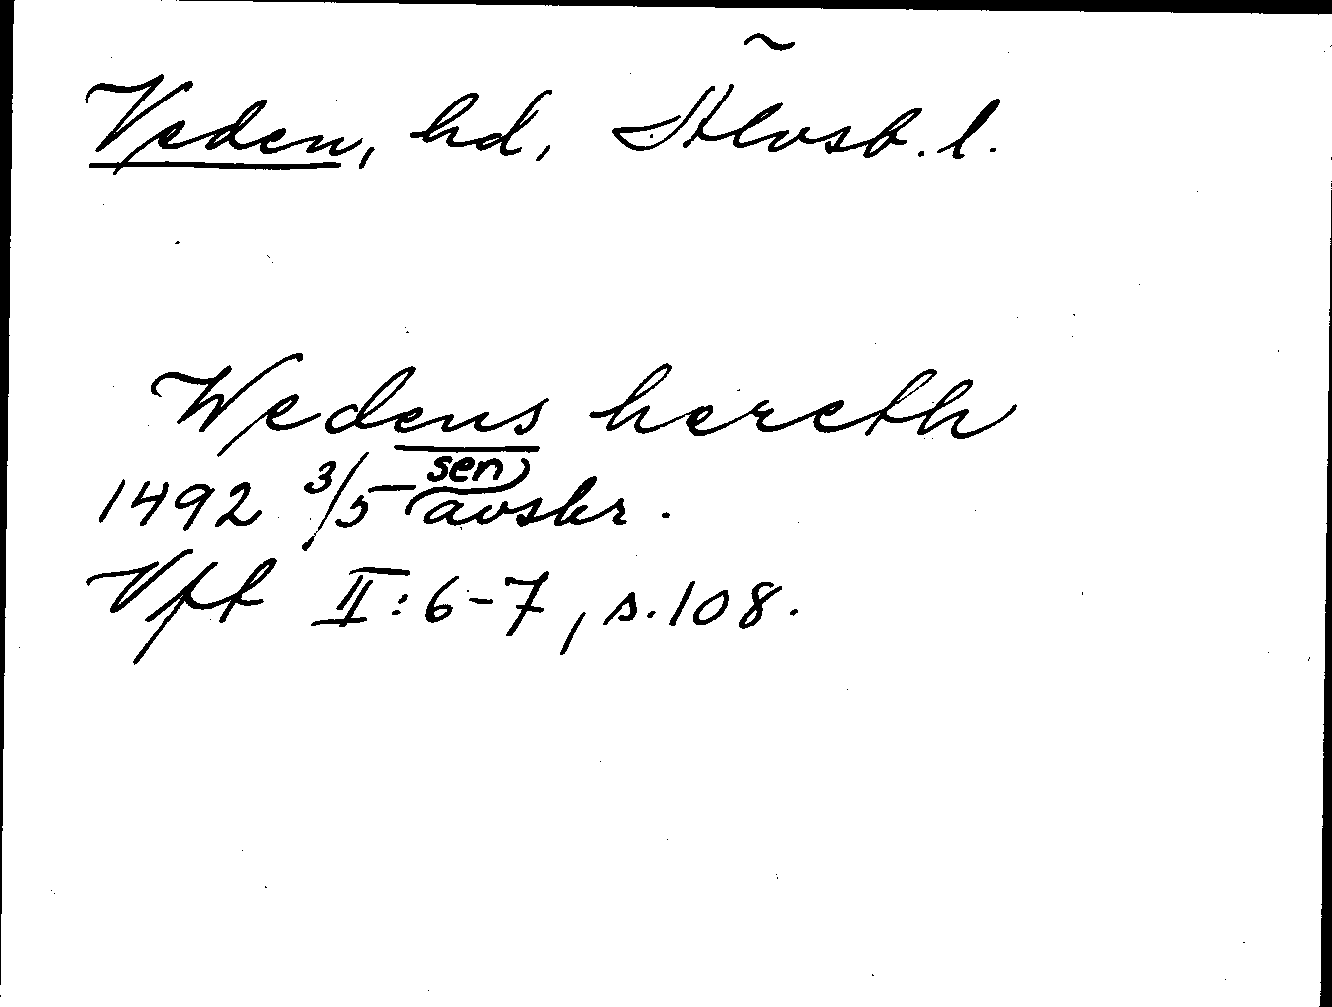 Veden, hd, Älvsb. l.
Wedens hereth
1492 3/5 sen avskr.
Vft II: 6-7, s. 108.